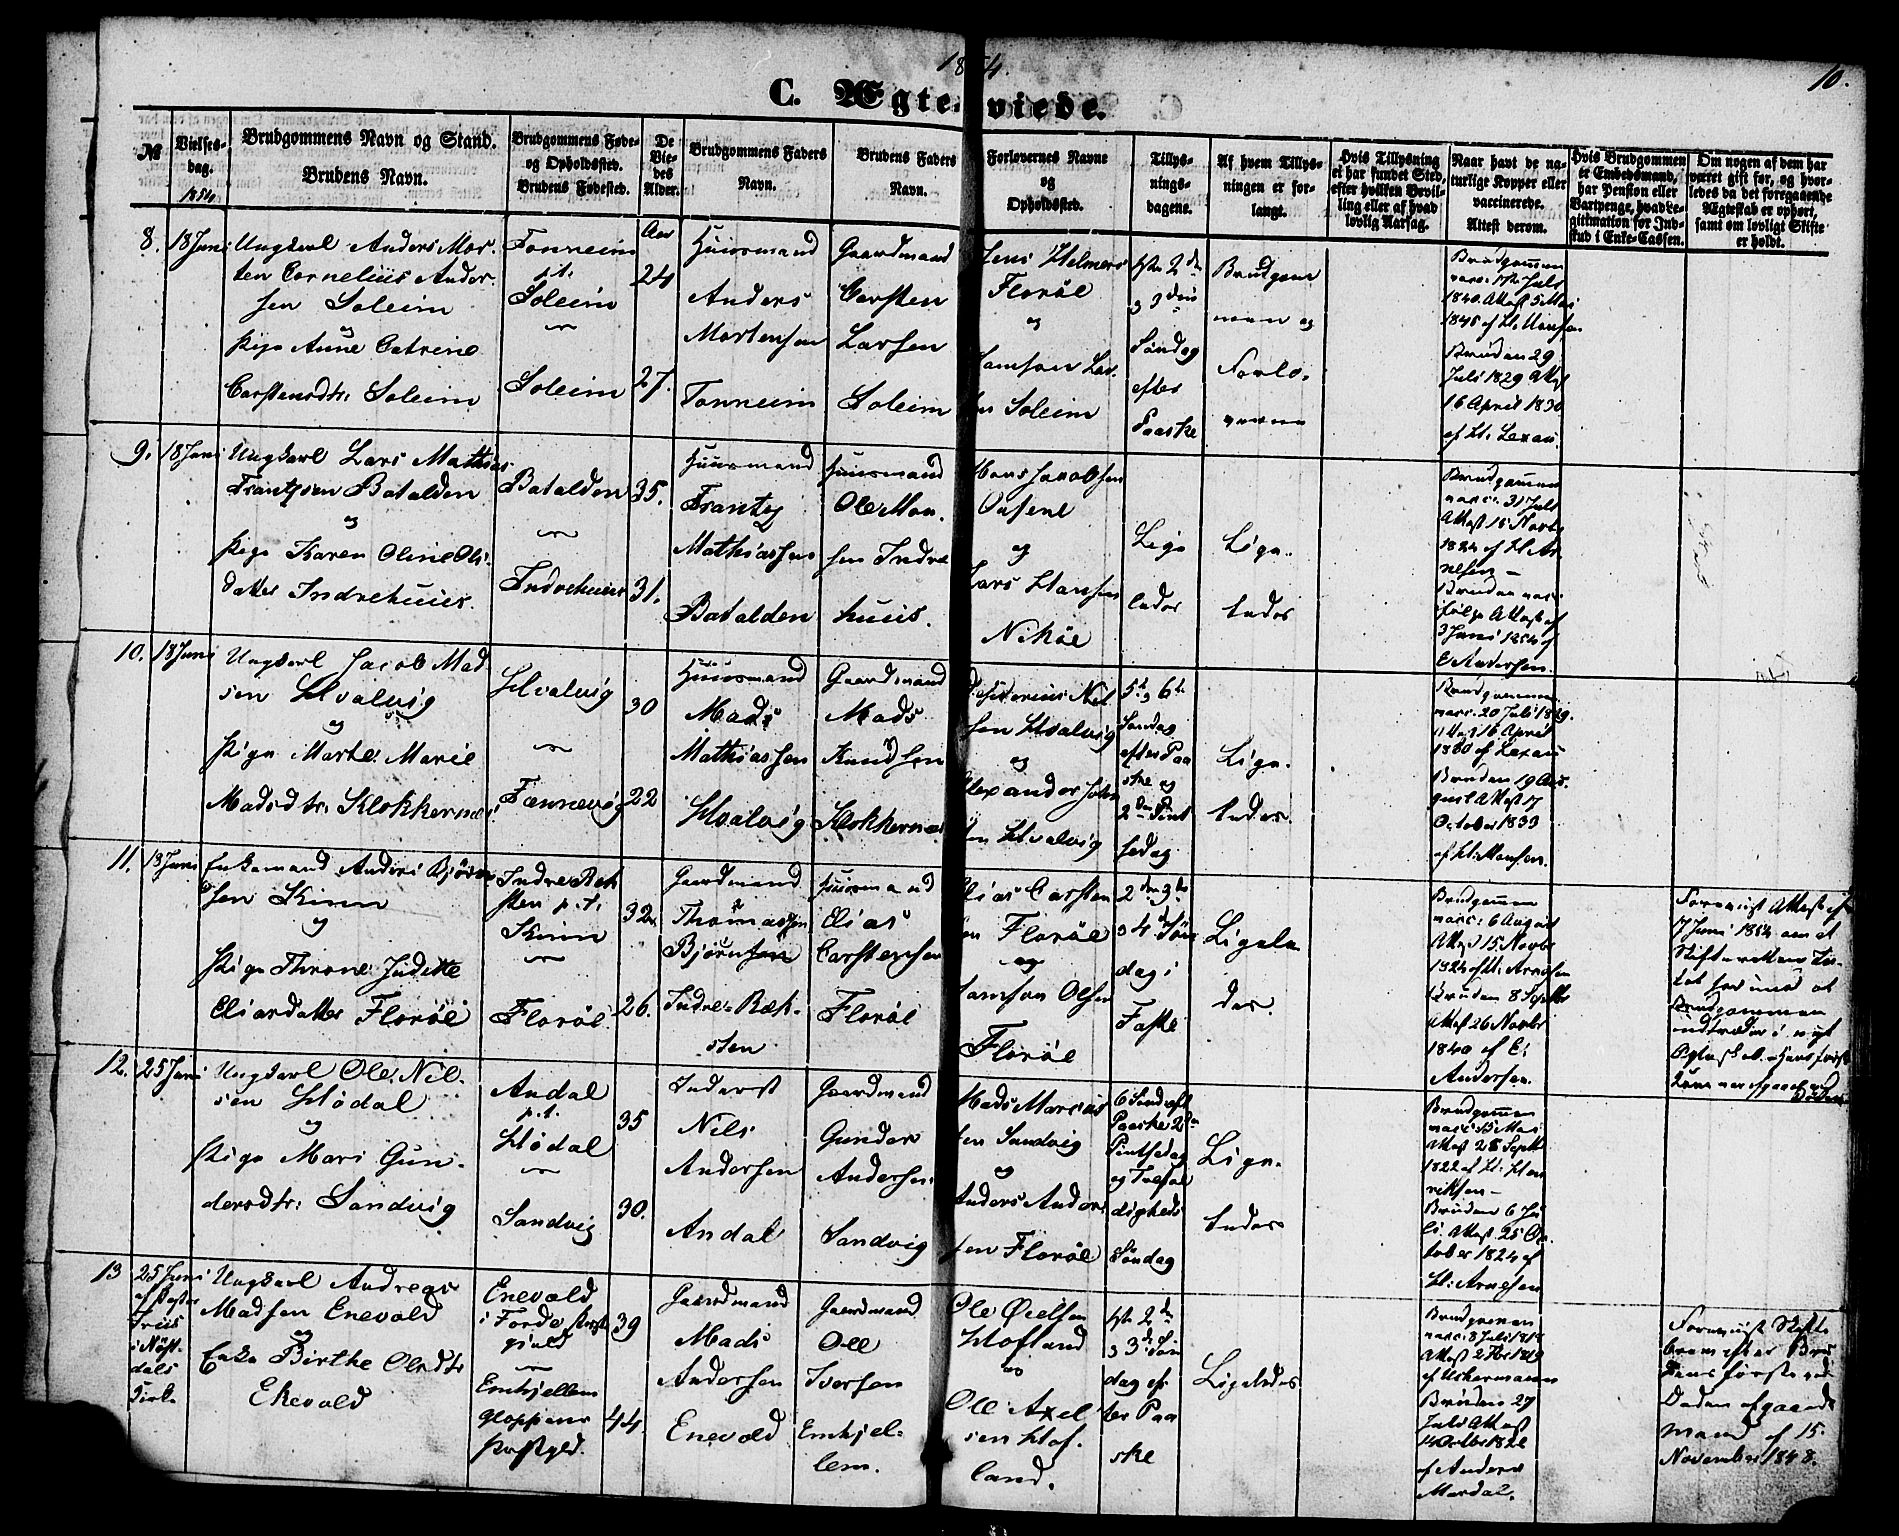 1854.
10.
C. Ægteviede.
No
Vielses-
dag.
1854
Brudgommens Navn og Stand.
Brudens Navn.
Brudgommens Føde-
og Opholdssted.
Brudens Fødested.
De
Vie-
des
Alder.
Brudgommens Faders
Navn.
Brudens Faders
Navn.
Forlovernes Navne
og
Opholdssted.
Tillys-
nings-
dagene.
Af hvem Tillys-
ningen er for-
langt.
Hvis Tillysning
ei har fundet Sted,
efter hvilken Bevil-
ling eller af hvad
lovlig Aarsag.
Naar havt de na-
turlige Kopper eller
vaccinerede.
Attest derom.
Hvis Brudgommen
er Embedsmand,
har Pension eller
Vartpenge, hvad Le-
gitimation for Ind-
skud i Enke-Cassen.
Om nogen af dem har
været gift før, og hvor-
ledes da det foregaaende
Ægteskab er ophørt,
samt om lovligt Skifte
er holdt.
8.
18 Juni
Ungkarl Anders Mor-
ten Cornelius Ander-
sen Soleim
og
Pige Anne Catrine
Carstensdtr: Soleim
Tonneim
p.t.
Soleim
Soleim
Aar
24
27.
Huusmand
Anders
Mortensen
Tonneim
Gaardmand
Carsten
Larsen
Soleim
Jens Helmers
Florøe
og
Samson Lar-
sen Soleim
2den
og 3die
Søndag
efter
Paaske
Brudgom-
men og
Forlo-
verne
Brudgommen
vacc: 17 Juli
1840. Attest 5 Mai
1845 af H. Hansen
Bruden 29
Juli 1829 Attest
16 April 1830
af H. Lexau.
9.
18 Juni
Ungkarl Lars Mathias
Frantzen Batalden
og
Pige Karen Oline Ols-
datter Indrehuus.
Batalden
Indrehuus
35.
31.
Huusmand
Frantz
Mathiassen
Batalden
Huusmand
Ole Mon-
sen Indre
huus.
Hans Jacobsen
og
Lars Hansen
Nikøe
Lige
ledes
Lige-
ledes
Brudgommen
vacc: 31 Juli
Attest 15 Novbr
1824 af H. Ar-
nesen –
Bruden vacc:
følge Attest af
3 Juni 1854 af
E Andersen.
10.
18 Juni
Ungkarl Jacob Mad
sen Hvalvig
og
Pige Marte Marie
Madsdtr: Klokkernæs
Hvalvig
Fannevig
30
22
Huusmand
Mads
Mathiassen
Hvalvig
Gaardmand
Mads
Knudsen
Klokkernæs
Nil
sen Hvalvig
og
Alexander John
sen Hvalvig
5te og 6te
Søndag
efter Paa
ske og
2den Pint
sedag
Lige-
ledes.
Brudgommen
vacc. 20 Juli 1829.
Attest 16 April
1830 af Lexau
Bruden 19 Au-
gust Attest 17
October 1833
af H: Hansen.
11.
18 Juni
Enkemand Anders Bjørn
sen Kinn
og
Pige Throne Juditte
Eliasdatter Florøe
Indre Ræk
sten p.t.
Kinn
Florøe
32
26.
Gaardmand
Thomassen
Bjørnsen
Indre Ræk-
sten
Huusmand
Elias
Carstensen
Florøe
Elias Carsten
sen Florøe
og
Samson Olsen
Florøe
2den 3die
og 4de Søn
dag i
Faste
Ligele
des.
Brudgommen
vacc: 6 August
Attest 15 Novbr
1824 af H: Arnesen
Bruden 8 Septbr
Attest 26 Novbr
1840 af E.
Andersen.
Foreviist Attest af
7 Juni 1854 om at
Skifteretten In-
tet har imod at
Brudgommen
indtræder i nyt
Ægteskab. Hans første
Kone var afgaaet ved
Døden
12.
25 Juni
Ungkarl Ole Nil-
sen Hødal
og
Pige Mari Gun-
dersdtr: Sandvig
Andal
p.t.
Hødal
Sandvig
35
30.
Inderst
Nils
Andersen
Andal
Gaardmand
Gunder
Andersen
Sandvig
Mads Marcus
sen Sandvig
og
Anders Ander-
sen Florøe
6 Sønd. eft.
Paaske 2den
Pintsedag
og Trefol
digheds
Søndag
Lige-
ledes
Brudgommen
vacc: 15 Mai
Attest 28 Septbr
1822 af H: Hen
riksen –
Bruden 6 Ju
li Attest 25 Oc-
tober 1824 af
H: Arnesen
13
25 Juni
Ungkarl Andreas
Madsen Enevold
og
Enke Birthe Olsdtr
Enevold
Enevold
i Førde Præste
gield
Emhjellem
Gloppens
Præstgld.
39
44.
Gaardmand
Mads
Andersen
Enevold
Gaardmand
Ole
Iversen
Emhjel-
lem.
Ole
Hofland
og
Ole Axel-
sen Hof-
land.
2den
og 3die Søn
dag ef-
ter Paa
ske
Ligeledes
Brudgommen
vacc: 8 Juli 1818
Attest 2 Febr 1819
af Uchermann
Bruden 27
Juli Attest
14 Octbr 1821
af Anders
Mardal.
Foreviist Skifte
brev efter Bru
dens første ved
Døden afgaaede
Mand af 15.
November 1848.